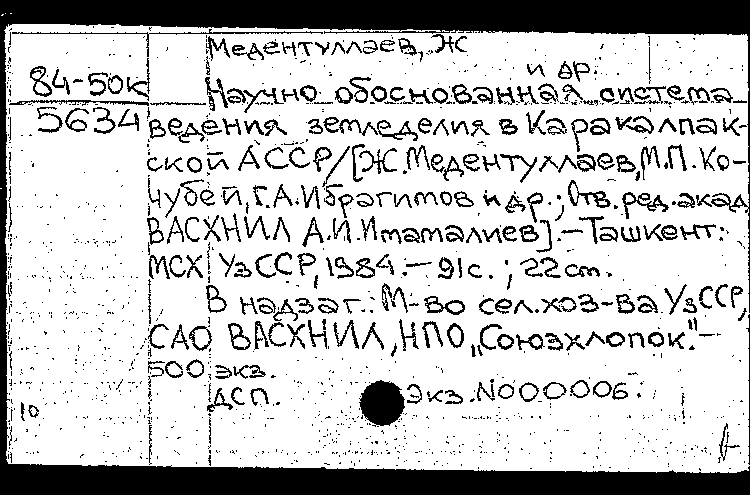 Медентуллаев, Ж
и др.
84-50к
Научно обоснованная система
5634
ведения земледелия в Каракалпак-
ской АССР/[Ж. Медентуллаев, М.П. Ко-
чубей, Г.А. Ибрагимов и др.; Отв. ред. акад
ВАСХНИЛ А.И. Имамалиев].-Ташкент:
МСХ УзССР, 1984.-91с.; 22 cm.
В надзаг.: М-во сел. хоз-ва УзССР,
САО ВАСХНИЛ, НПО „Союзхлопок."-
500 экз.
ДСП. Экз. N000006.
10